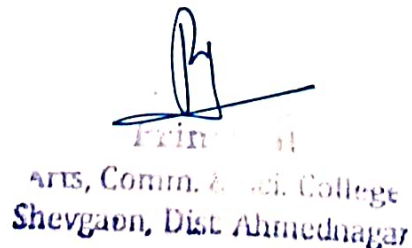 Principal
Arts, Comm. & Sci. College
Shevgaon, Dist. Ahmednagar